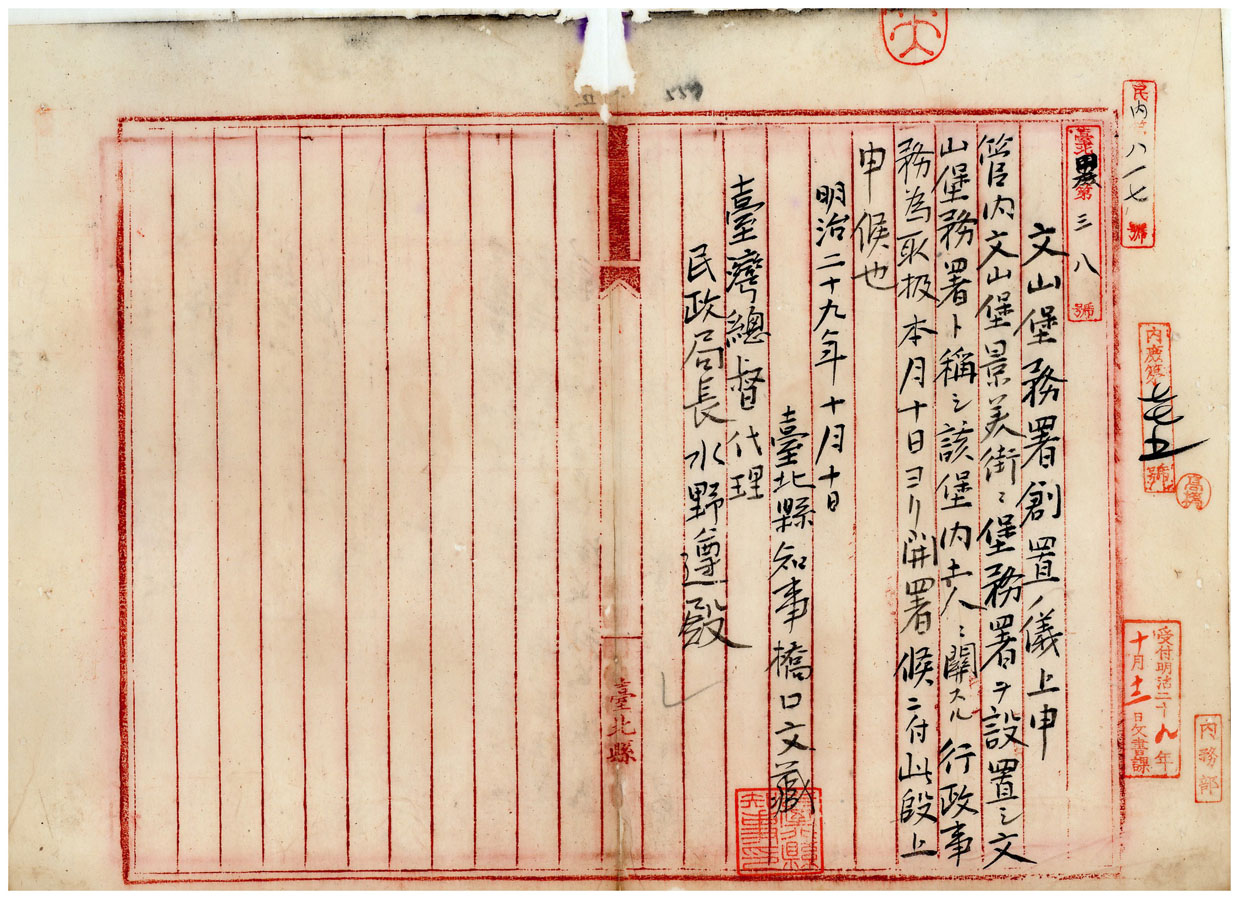 民内二八一七號
内庶第 號
受付明治二十九年
十月十二日文書課
内務部
臺 庶第三八號
文山堡務署創置ノ儀上申
管内文山堡景美街ニ堡務署ヲ設置シ文
山堡務署ト稱シ該堡内土人ニ關スル行政事
務為取扱本月十日ヨリ開署候ニ付此段上
申候也
明治二十九年十月十日
臺北縣知事橋口文藏
臺灣總督代理
民政局長水野遵殿
臺北縣